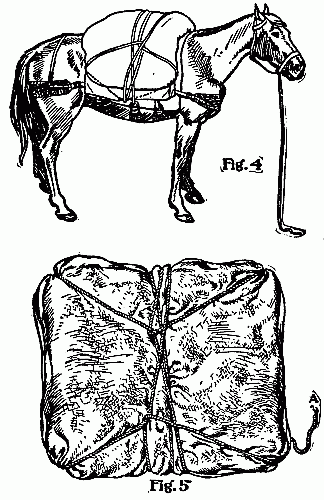 Fig. 4
A
Fig. 5